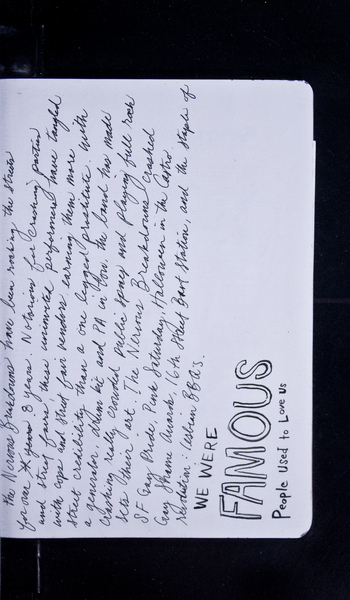 the Nervous Breakdowns have been rocking the streets
for over 8 years. Notorious for crashing parties
and street fairs, these uninvited performers have tangled
with cops and street fair vendors earning them more
street credibility than a one legged prostitute. With
a generator, drum kit and PA in tow, the band has made
crashing really crowded public spaces and playing full rock
sets their art. The Nervous Breakdowns crashed
SF Gay Pride, Pink Saturday, Halloween in the Castro
Gay Shame Awards, 16th Street Bart Station, and the staple of
revolution: lesbian BBQs.
WE WERE
FAMOUS
People Used to Love Us